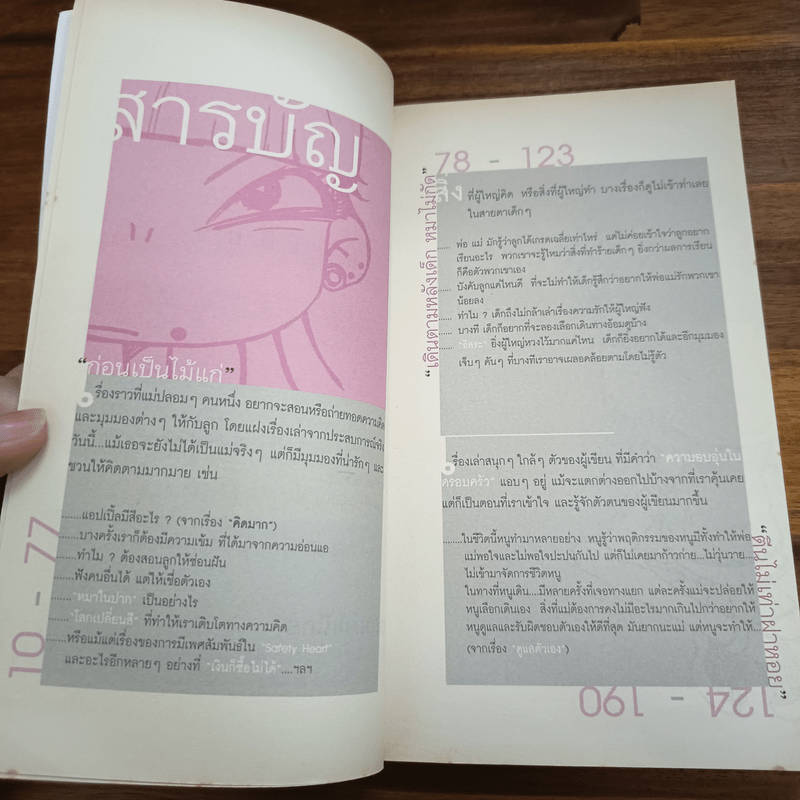 สารบัญ
“ก่อนเป็นไม้แก่”
เรื่องราวที่แม่ปลอมๆ คนหนึ่ง อยากจะสอนหรือถ่ายทอดความคิด
และมุมมองต่างๆ ให้กับลูก โดยแฝงเรื่องเล่าจากประสบการณ์จริง
วันนี้...แม้เธอจะยังไม่ได้เป็นแม่จริงๆ แต่ก็มีมุมมองที่น่ารักๆ และ
ชวนให้คิดตามมากมาย เช่น
.......แอปเปิ้ลมีสีอะไร ? (จากเรื่อง "คิดมาก")
......บางครั้งเราก็ต้องมีความเข้ม ที่ได้มาจากความอ่อนแอ
......ทำไม ? ต้องสอนลูกให้ซ่อนฝัน
......ฟังคนอื่นได้ แต่ให้เชื่อตัวเอง
......"หมาในปาก" เป็นอย่างไร
......"โลกเปลี่ยนสี" ที่ทำให้เราเติบโตทางความคิด
......หรือแม้แต่เรื่องของการมีเพศสัมพันธ์ใน "Safety Heart"
และอะไรอีกหลายๆ อย่างที่ "เงินก็ซื้อไม่ได้"....ฯลฯ
10 - 77
78 - 123
“เดินตามหลังเด็ก หมาไม่กัด”
สิ่ง ที่ผู้ใหญ่คิด หรือสิ่งที่ผู้ใหญ่ทำ บางเรื่องก็ดูไม่เข้าท่าเลย
ในสายตาเด็กๆ
...... พ่อ แม่ มักรู้ว่าลูกได้เกรดเฉลี่ยเท่าไหร่ แต่ไม่ค่อยเข้าใจว่าลูกอยาก
เรียนอะไร พวกเขาจะรู้ไหมว่าสิ่งที่ทำร้ายเด็กๆ ยิ่งกว่าผลการเรียน
ก็คือตัวพวกเขาเอง
...... บังคับลูกแค่ไหนดี ที่จะไม่ทำให้เด็กรู้สึกว่าอยากให้พ่อแม่รักพวกเขา
น้อยลง
...... ทำไม ? เด็กถึงไม่กล้าเล่าเรื่องความรักให้ผู้ใหญ่ฟัง
...... บางที เด็กก็อยากที่จะลองเลือกเดินทางอ้อมดูบ้าง
...... "อิสระ" ยิ่งผู้ใหญ่หวงไว้มากแค่ไหน เด็กก็ยิ่งอยากได้และอีกมุมมอง
เจ็บๆ คันๆ ที่บางทีเราอาจเผลอคล้อยตามโดยไม่รู้ตัว
เรื่องเล่าสนุกๆ ใกล้ๆ ตัวของผู้เขียน ที่มีคำว่า "ความอบอุ่นใน
ครอบครัว" แอบๆ อยู่ แม้จะแตกต่างออกไปบ้างจากที่เราคุ้นเคย
แต่ก็เป็นตอนที่เราเข้าใจ และรู้จักตัวตนของผู้เขียนมากขึ้น
....ในชีวิตนี้หนูทำมาหลายอย่าง หนูรู้ว่าพฤติกรรมของหนูมีทั้งทำให้พ่อ
แม่พอใจและไม่พอใจปะปนกันไป แต่ก็ไม่เคยมาก้าวก่าย...ไม่วุ่นวาย....
ไม่เข้ามาจัดการชีวิตหนู
ในทางที่หนูเดิน...มีหลายครั้งที่เจอทางแยก แต่ละครั้งแม่จะปล่อยให้
หนูเลือกเดินเอง สิ่งที่แม่ต้องการคงไม่มีอะไรมากเกินไปกว่าอยากให้
หนูดูแลและรับผิดชอบตัวเองให้ดีที่สุด มันยากนะแม่ แต่หนูจะทำให้...
(จากเรื่อง "ดูแลตัวเอง")
124 - 190